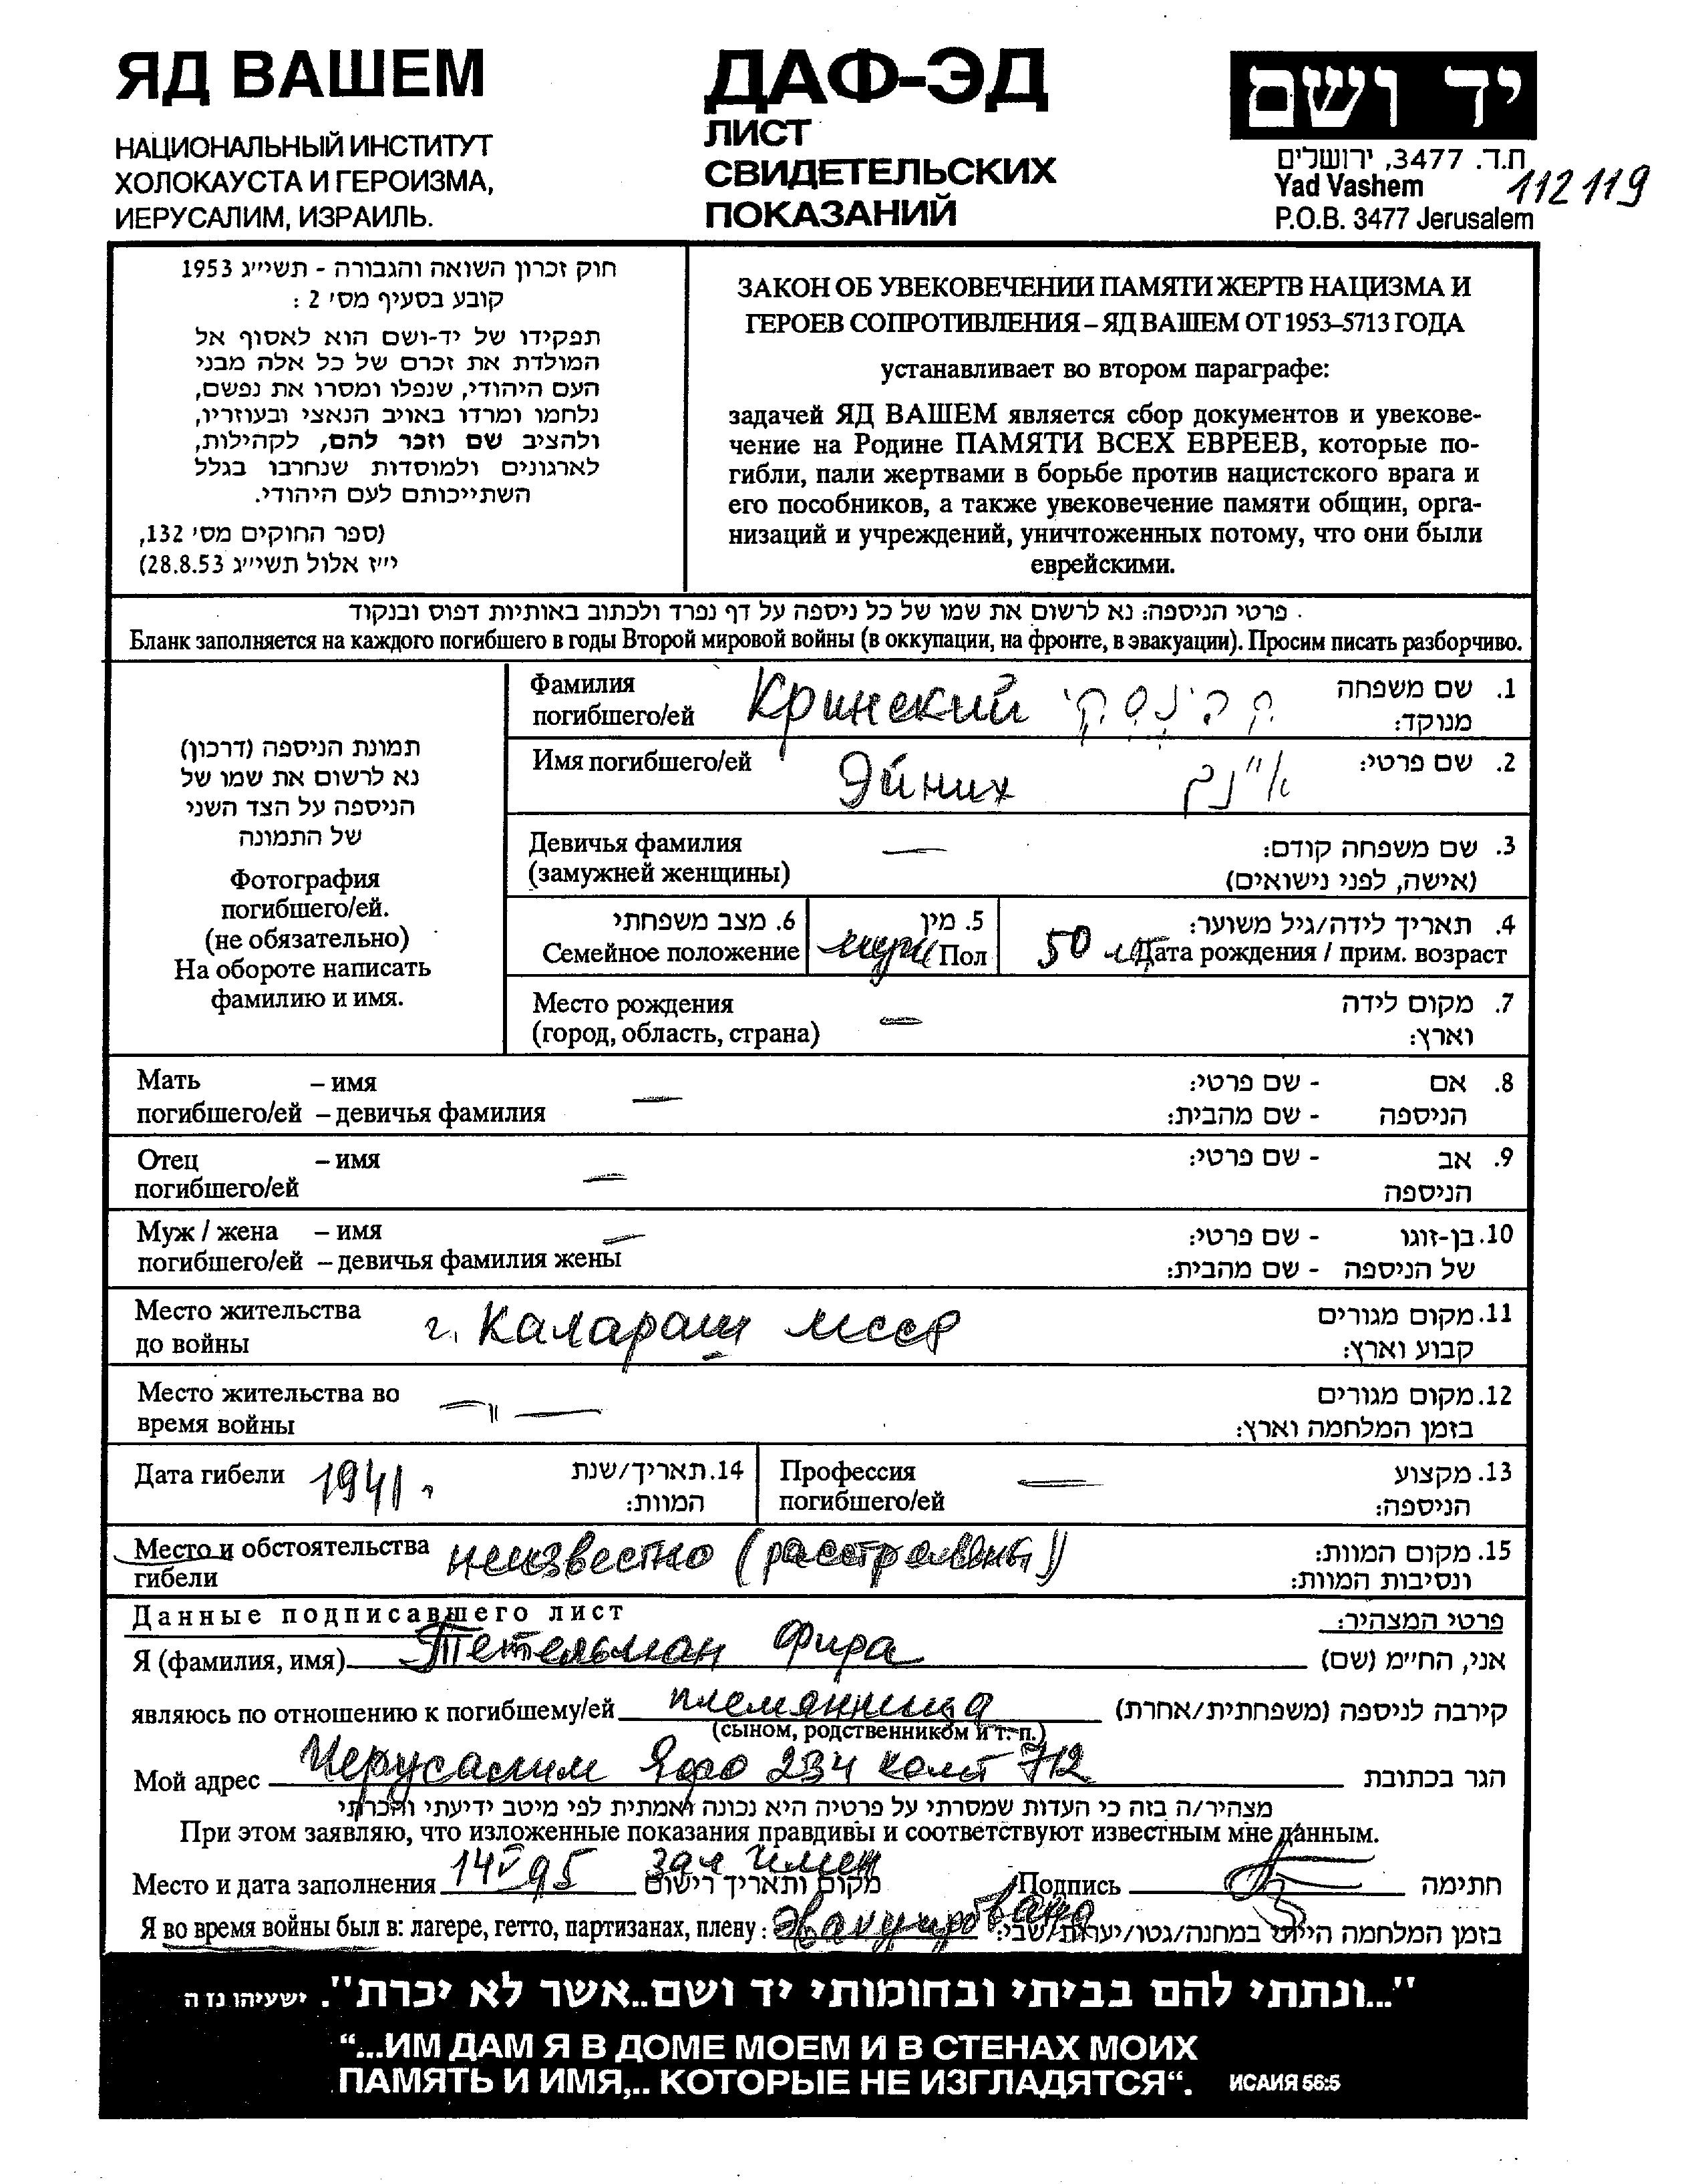 ЯД ВАШЕМ
НАЦИОНАЛЬНЫЙ ИНСТИТУТ
ХОЛОКАУСТА И ГЕРОИЗМА,
ИЕРУСАЛИМ, ИЗРАИЛЬ.
ДАФ-ЭД
ЛИСТ
СВИДЕТЕЛЬСКИХ
ПОКАЗАНИЙ
יד ושם
ת.ד. 3477, ירושלים
Yad Vashem
P.O.B. 3477 Jerusalem
112119
חוק זכרון השואה והגבורה - תשי״ג 1953
קובע בסעיף מס׳ 2 :
תפקידו של יד-ושם הוא לאסוף אל
המולדת את זכרם של כל אלה מבני
העם היהודי, שנפלו ומסרו את נפשם,
נלחמו ומרדו באויב הנאצי ובעוזריו,
ולהציב שם וזכר להם, לקהילות,
לארגונים ולמוסדות שנחרבו בגלל
השתייכותם לעם היהודי.
(ספר החוקים מס׳ 132,
י״ז אלול תשי״ג 28.8.53)
ЗАКОН ОБ УВЕКОВЕЧЕНИИ ПАМЯТИ ЖЕРТВ НАЦИЗМА И
ГЕРОЕВ СОПРОТИВЛЕНИЯ – ЯД ВАШЕМ ОТ 1953–5713 ГОДА
устанавливает во втором параграфе:
задачей ЯД ВАШЕМ является сбор документов и увекове-
чение на Родине ПАМЯТИ ВСЕХ ЕВРЕЕВ, которые по-
гибли, пали жертвами в борьбе против нацистского врага и
его пособников, а также увековечение памяти общин, орга-
низаций и учреждений, уничтоженных потому, что они были
еврейскими.
פרטי הניספה: נא לרשום את שמו של כל ניספה על דף נפרד ולכתוב באותיות דפוס ובנקוד.
Бланк заполняется на каждого погибшего в годы Второй мировой войны (в оккупации, на фронте, в эвакуации). Просим писать разборчиво.
תמונת הניספה (דרכון)
נא לרשום את שמו של
הניספה על הצד השני
של התמונה
Фотография
погибшего/ей.
(не обязательно)
На обороте написать
фамилию и имя.
Фамилия
погибшего/ей Кринский קרינסקי
1. שם משפחה
מנוקד:
Имя погибшего/ей Эйних אייניך
2. שם פרטי:
Девичья фамилия
(замужней женщины) —
3. שם משפחה קודם:
(אישה, לפני נישואים)
6. מצב משפחתי
Семейное положение
5. מין
Пол муж
4. תאריך לידה/גיל משוער:
50 лет Дата рождения / прим. возраст
Место рождения
(город, область, страна) —
7. מקום לידה
וארץ:
Мать – имя
погибшего/ей – девичья фамилия —
8. אם - שם פרטי:
הניספה - שם מהבית:
Отец – имя
погибшего/ей —
9. אב - שם פרטי:
הניספה
Муж / жена – имя —
погибшего/ей – девичья фамилия жены
10. בן-זוגו - שם פרטי:
של הניספה - שם מהבית:
Место жительства
до войны г. Калараш мсср
11. מקום מגורים
קבוע וארץ:
Место жительства во
время войны —"—
12. מקום מגורים
בזמן המלחמה וארץ:
Дата гибели 1941г.
14. תאריך/שנת
המוות:
Профессия
погибшего/ей —
13. מקצוע
הניספה:
Место и обстоятельства
гибели неизвестно (расстреляны)
15. מקום המוות:
ונסיבות המוות:
Данные подписавшего лист פרטי המצהיר:
Я (фамилия, имя) Тетельман Фира אני, החי״מ (שם)
являюсь по отношению к погибшему/ей племянница קירבה לניספה (משפחתית/אחרת)
(сыном, родственником и т. п.)
Мой адрес Иерусалим Яфо 234 комт 712 הגר בכתובת
מצהיר/ה בזה כי העדות שמסרתי על פרטיה היא נכונה ואמתית לפי מיטב ידיעתי והכרתי
При этом заявляю, что изложенные показания правдивы и соответствуют известным мне данным.
Место и дата заполнения 14 V 95 מקום ותאריך רישום Подпись חתימה
Я во время войны был в: лагере, гетто, партизанах, плену: Эвакуирована בזמן המלחמה הייתי במחנה/גטו/יערות/שבי:
"...ונתתי להם בביתי ובחומותי יד ושם..אשר לא יכרת". ישעיהו נז ה
“...ИМ ДАМ Я В ДОМЕ МОЕМ И В СТЕНАХ МОИХ
ПАМЯТЬ И ИМЯ,.. КОТОРЫЕ НЕ ИЗГЛАДЯТСЯ“. ИСАИЯ 56:5